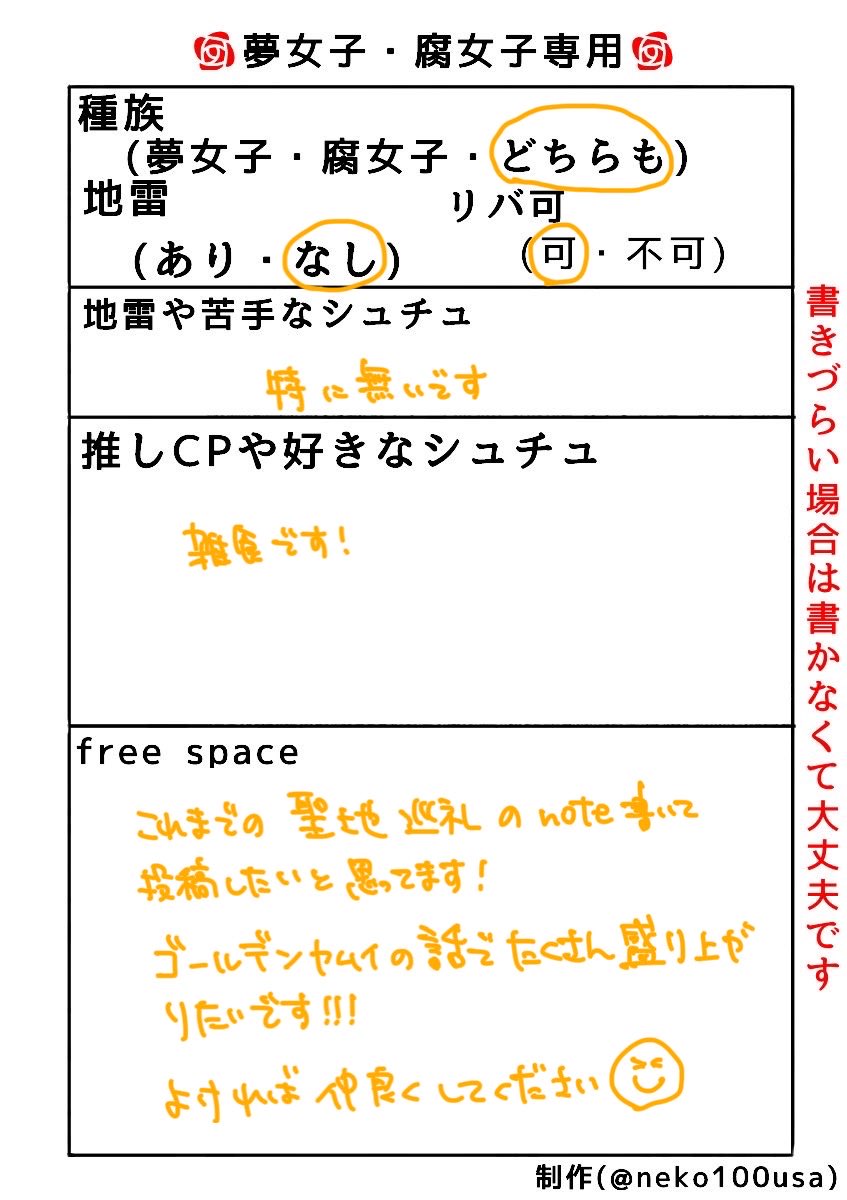 夢女子・腐女子専用
種族
(夢女子・腐女子・どちらも)
地雷
(あり・なし)
リバ可
(可・不可)
地雷や苦手なシュチュ
特に無いです
推しCPや好きなシュチュ
雑食です!
free space
これまでの聖地巡礼のnote書いて
投稿したいと思ってます!
ゴールデンカムイの話でたくさん盛り上が
りたいです!!!
よければ仲良くしてください
書きづらい場合は書かなくて大丈夫です
制作(@neko100usa)